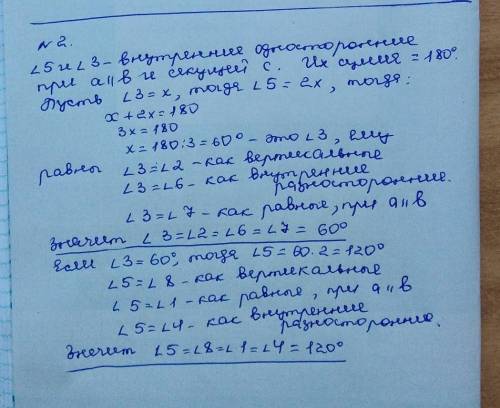 №2.
∠5 и ∠3 - внутренние односторонние
при a||в и секущей с. Их сумма = 180°.
Пусть ∠3 = x, тогда ∠5 = 2x, тогда:
x + 2x = 180
3x = 180
x = 180:3 = 60° - это ∠3, ему
равны ∠3 = ∠2 - как вертикальные
∠3 = ∠6 - как внутренние
разносторонние.
∠3 = ∠7 - как равные, при a||в
Значит ∠3 = ∠2 = ∠6 = ∠7 = 60°
Если ∠3 = 60°, тогда ∠5 = 60·2 = 120°
∠5 = ∠8 - как вертикальные
∠5 = ∠1 - как равные, при a||в
∠5 = ∠4 - как внутренние
разносторонние.
Значит ∠5 = ∠8 = ∠1 = ∠4 = 120°